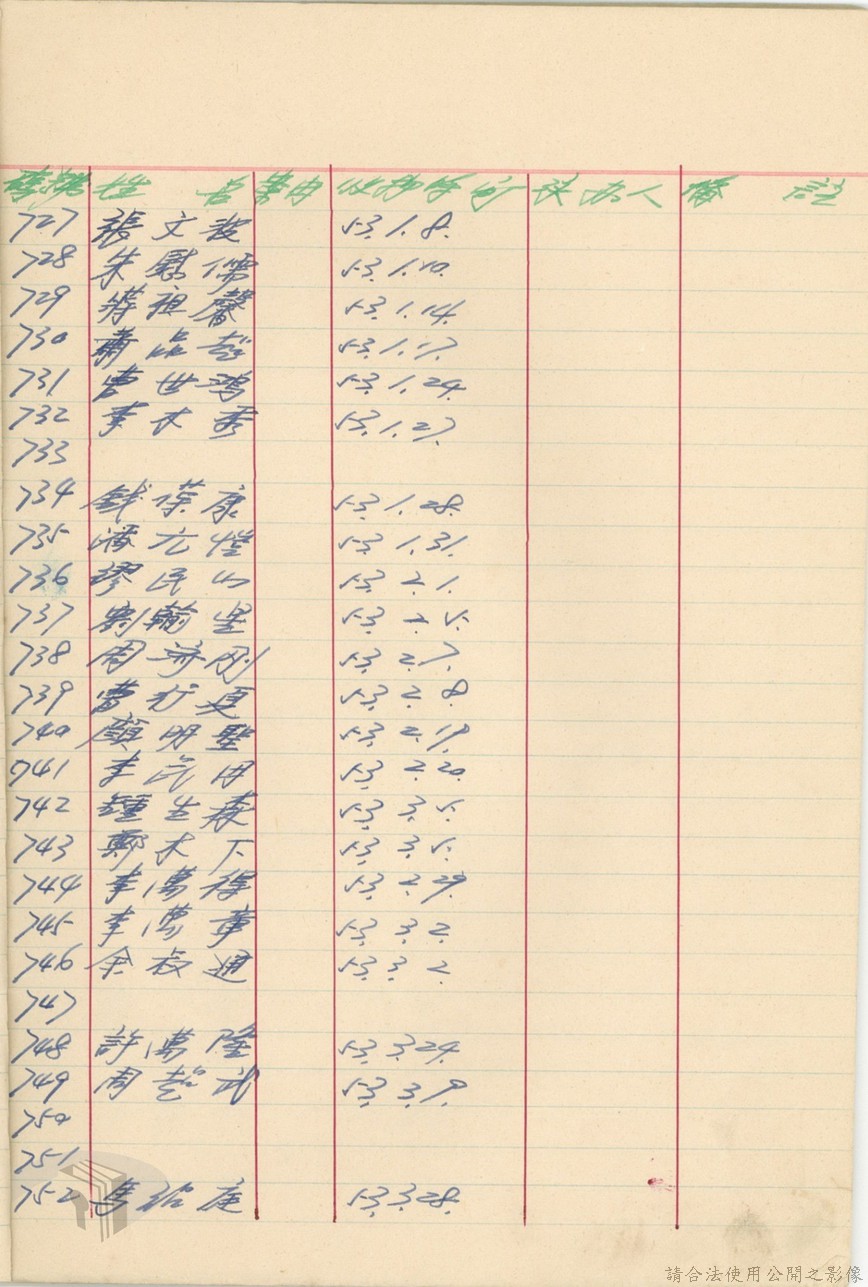 姓 名 案由 收押日 承办人 備 註
727 張文 53. 1. 8.
728 朱慰儒 53. 1. 10.
729 蔣祖馨 53. 1. 14.
730 蕭品超 53. 1. 17.
731 曹世鴻 53. 1. 24.
732 李木秀 53. 1. 27.
733
734 錢葆康 53. 1. 28.
735 潘元愷 53. 1. 31.
736 繆民山 53. 2. 1.
737 劉翰星 53. 2. 5.
738 周濟剛 53. 2. 7.
739 曹行夏 53. 2. 8.
740 顏明聖 53. 2. 19.
741 李民用 53. 2. 20.
742 鍾生森 53. 3. 5.
743 鄭木下 53. 3. 5.
744 李萬得 53. 2. 29.
745 李萬章 53. 3. 2.
746 余叔通 53. 3. 2.
747
748 許萬隆 53. 3. 24.
749 周超武 53. 3. 19.
750
751
752 馬紹庭 53. 3. 28.
請合法使用公開之影像